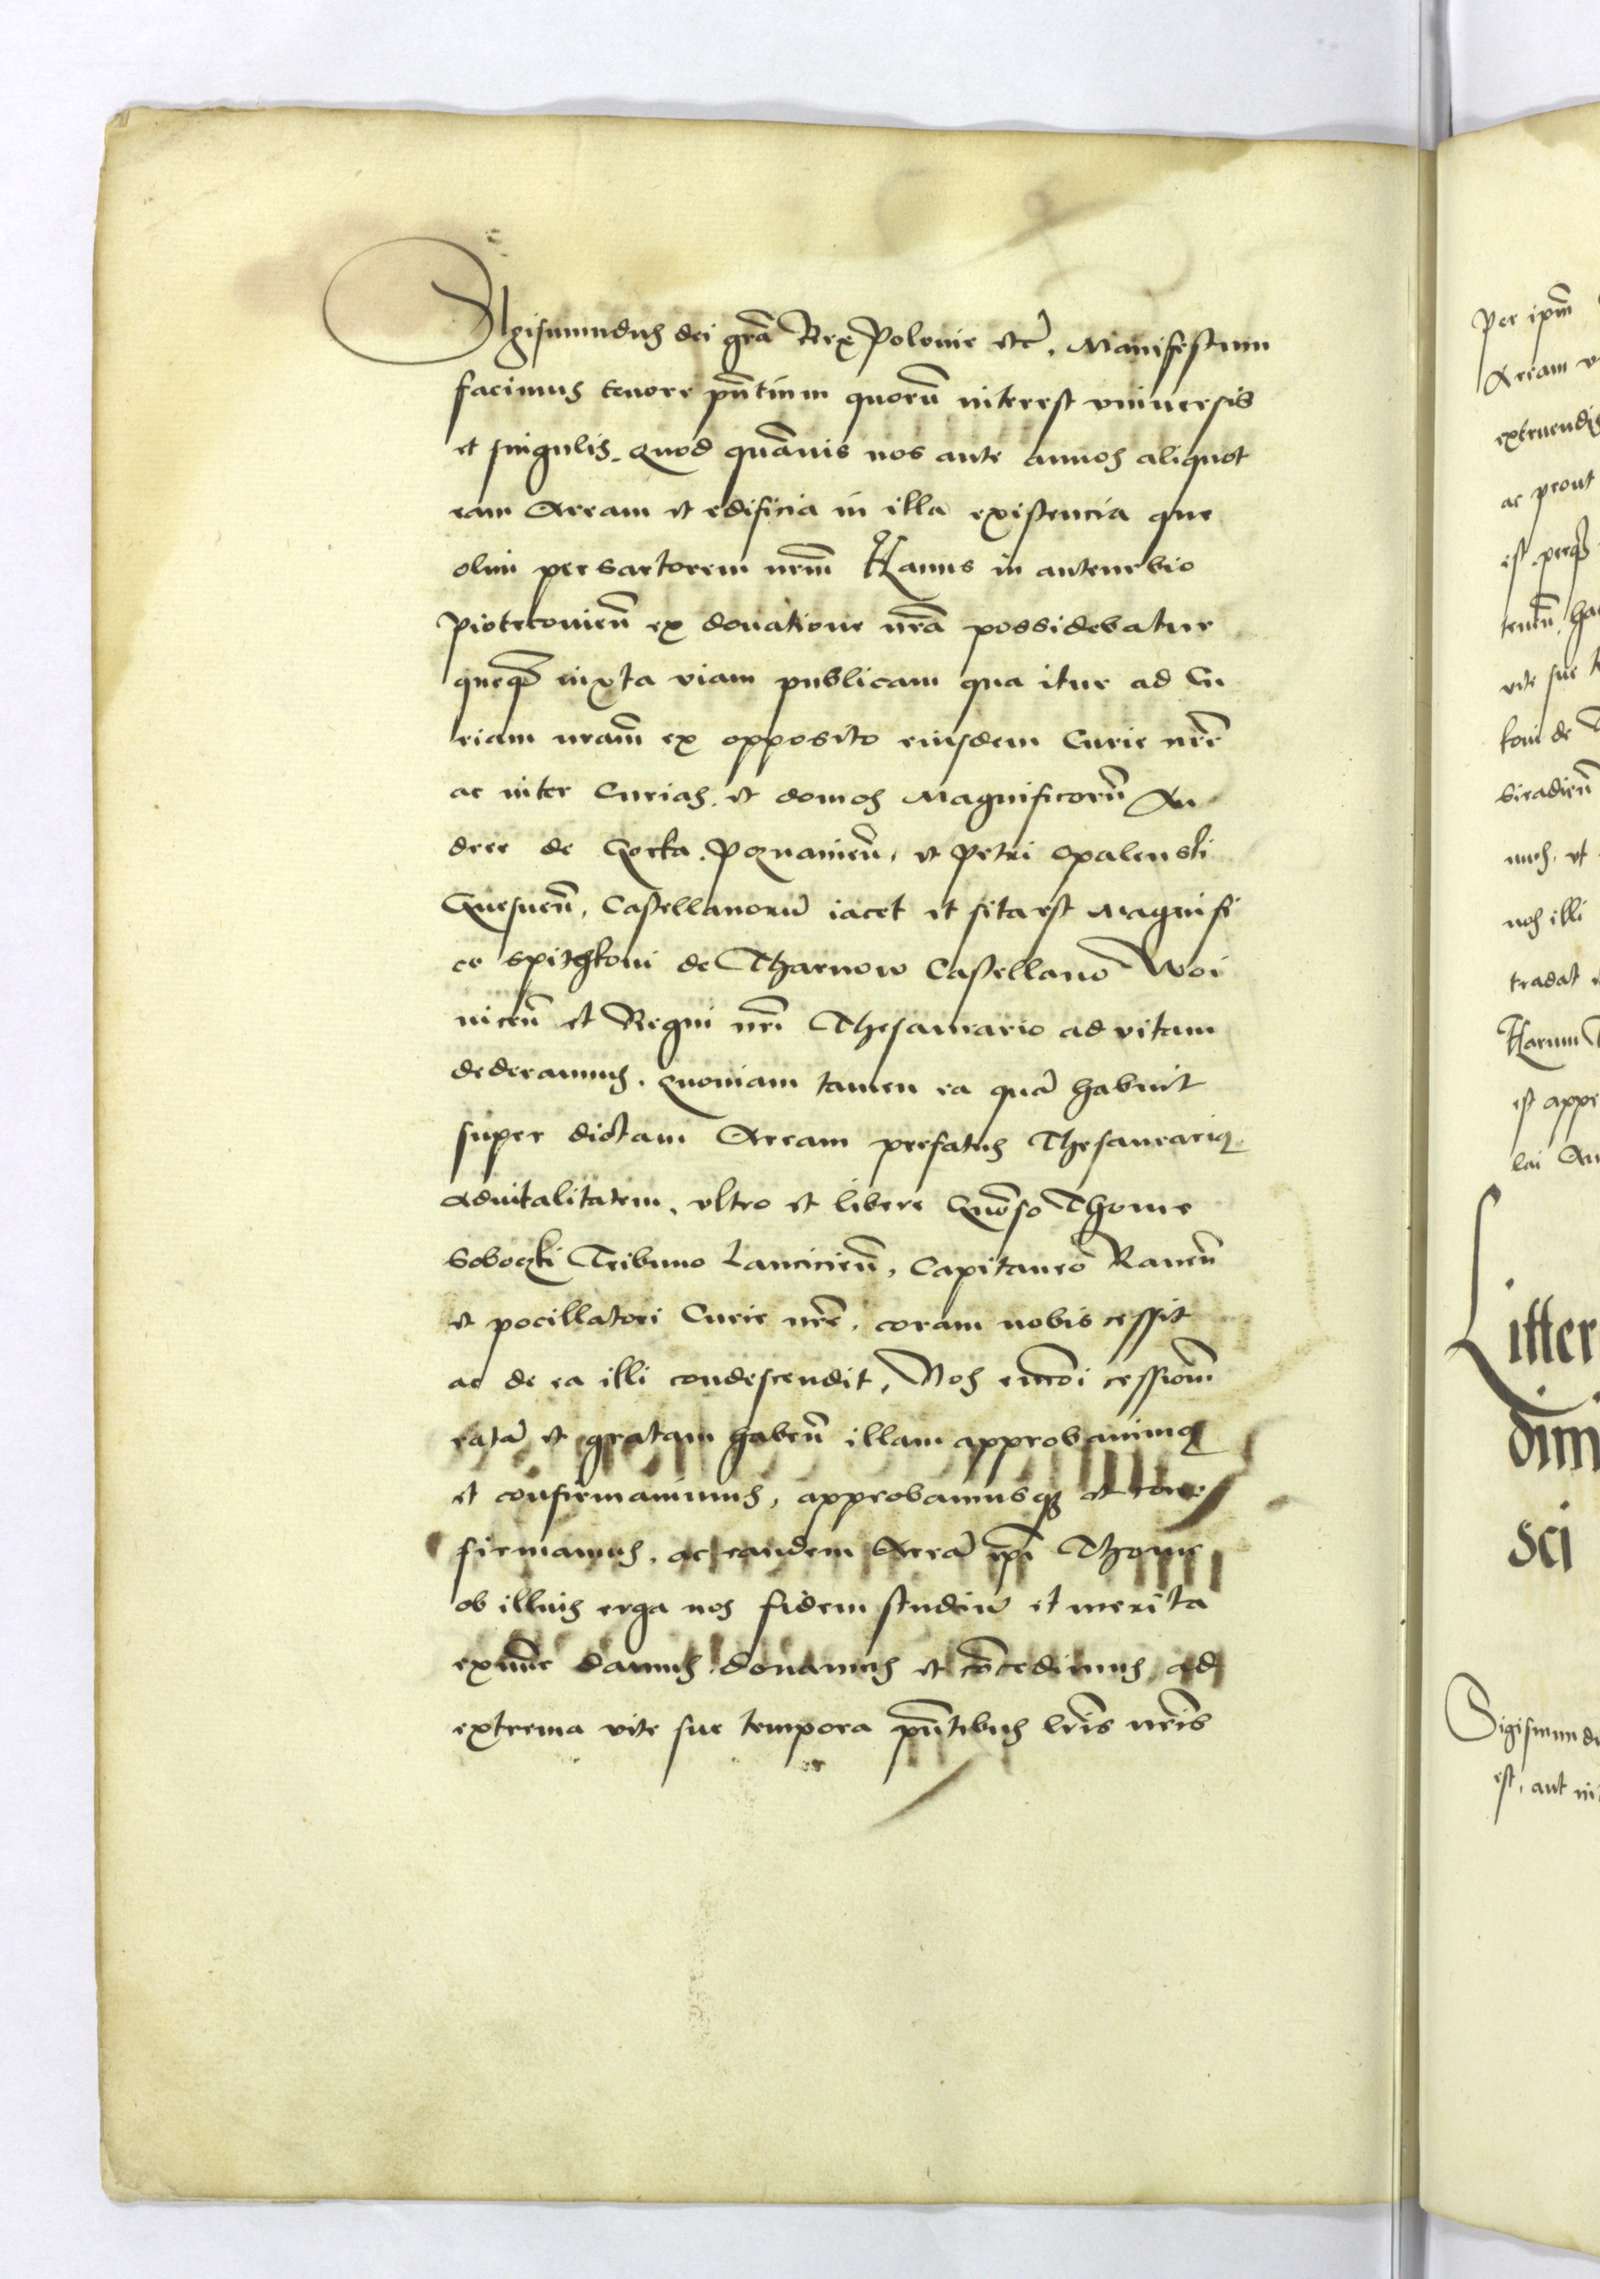 Sigismundus dei grā Rex Polonie etc̄. Manifestum
facimus tenore pn̄tium quorū interest vniuersis
et singulis. Quod quāuis nos ante annos aliquot
eam Aream et edificia in illa existencia que
olim per sartorem nrm̄ Hanus in anteurbio
Piotrcouien̄ ex donatione nrā possidebatur
queqȝ iuxta viam publicam qua itur ad Cu
riam nram̄ ex opposito eiusdem Curie nrē
ac inter Curias et domos Magnificorū An
dree de Gorka Poznanien̄, et Petri Opalenski
Gnesnen̄, Castellanorū iacet et sita est Magnifi
co Spithkoni de Tharnow Castellano Woi
nicen̄ et Regni nrī Thesaurario ad vitam
dederamus. Quoniam tamen ea quā habuit
super dictam Aream prefatus Thesaurariꝰ
aduitalitatem, vltro et libere Genēso Thome
Soboczki Tribuno Lancicien̄, Capitaneo Rauen̄
et pocillatori Curie nrē, coram nobis cessit
ac de ea illi condescendit, Nos cessionem̄
ratā et gratam haben̄ illam approbauimꝰ
et confirmauimus, approbamusqȝ et con
firmamus, ac eandem Areā ipī Thome
ob illius erga nos fidem studiū et merita
eximie damus donamus et cōcedimus, ad
extrema vite sue tempora pn̄tibus lrīs nrīs
Per ipm̄
Aream
extruendis
ac prout
est
vite sue
koni de
Siradien̄
nos illi
tradat
Harum
est appe
Litter
dim
sci
Sigismundu
est, aut